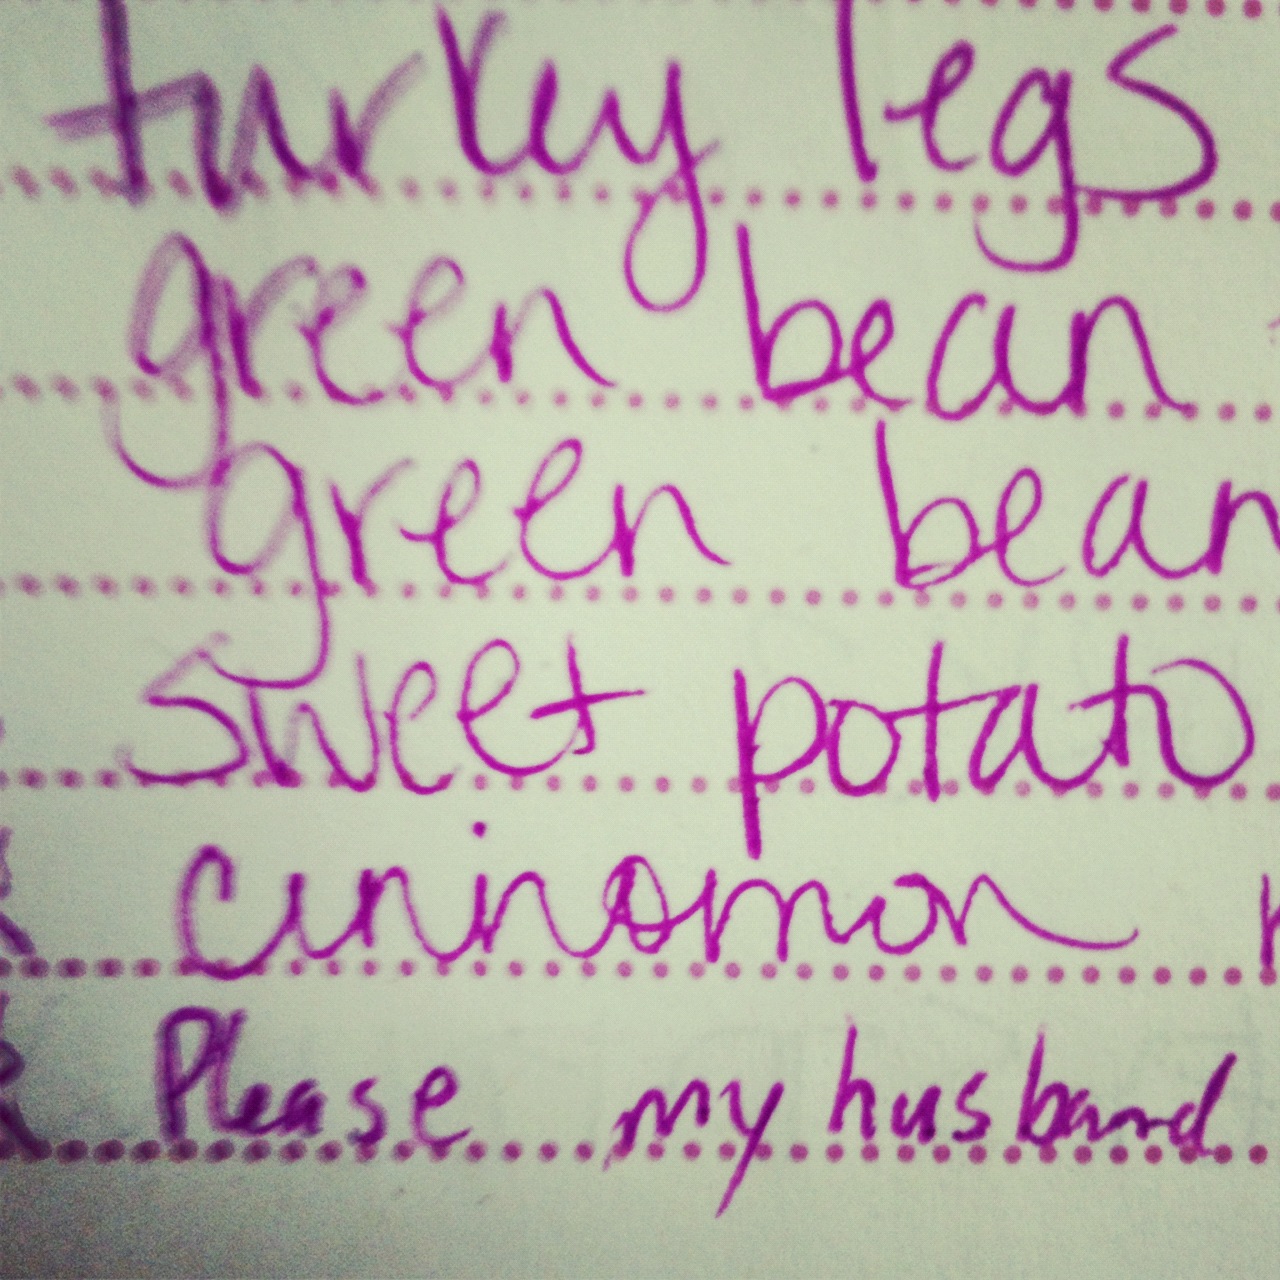 turky legs
green bean
green bean
sweet potato
cinnomon
Please my husband